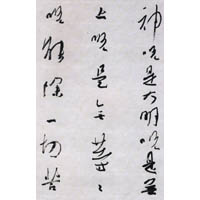 神咒是大明咒是無
上咒是無等等
咒能除一切苦